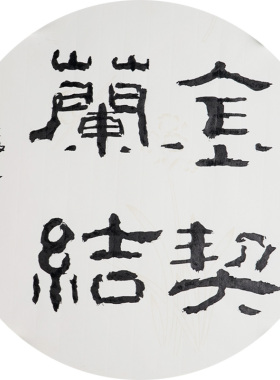 金契
蘭結